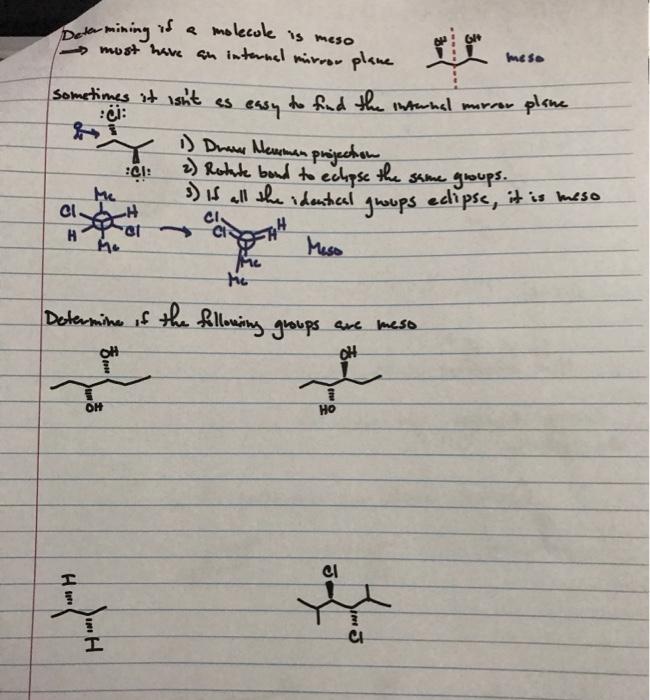 Determining if a molecule is meso
→ must have an internal mirror plane
OH OH
meso
Sometimes it isn't as easy to find the internal mirror plane
:Cl:
:Cl:
1) Draw Newman projection
2) Rotate bond to eclipse the same groups.
3) If all the identical groups eclipse, it is meso
Me
Cl H
H Cl
Me
→
Cl H
Cl H
Me
Me
Meso
Determine if the following groups are meso
OH OH
OH HO
I Cl
I Cl